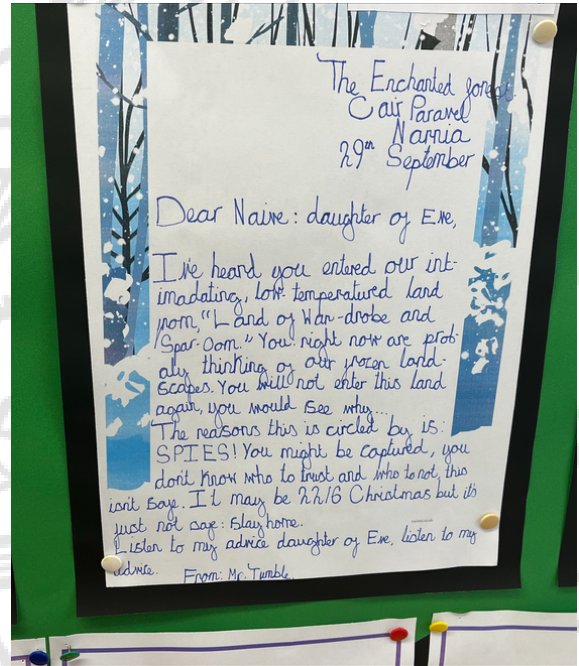 The Enchanted forest.
Cair Paravel
Narnia
29th September
Dear Naive: daughter of Eve,
I've heard you entered our int-
imadating, low-temperatured land
from, "Land of War-drobe and
Spar-Oom." You right now are prob-
aly thinking of our frozen land-
scapes. You will not enter this land
again, you would see why...
The reasons this is circled by is:
SPIES! You might be captured, you
don't know who to trust and who to not, this
isn't safe. It may be 22/6 Christmas but it's
just not safe: stay home.
Listen to my advice daughter of Eve, listen to my
advice.
From: Mr. Tumble